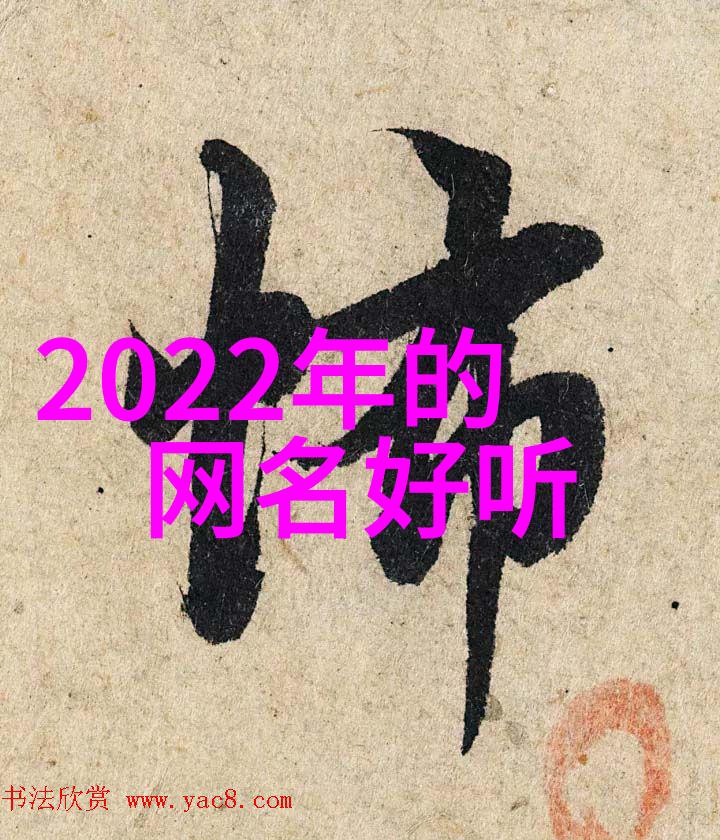 2022年的
网名好听
书法欣赏 www.yac8.com